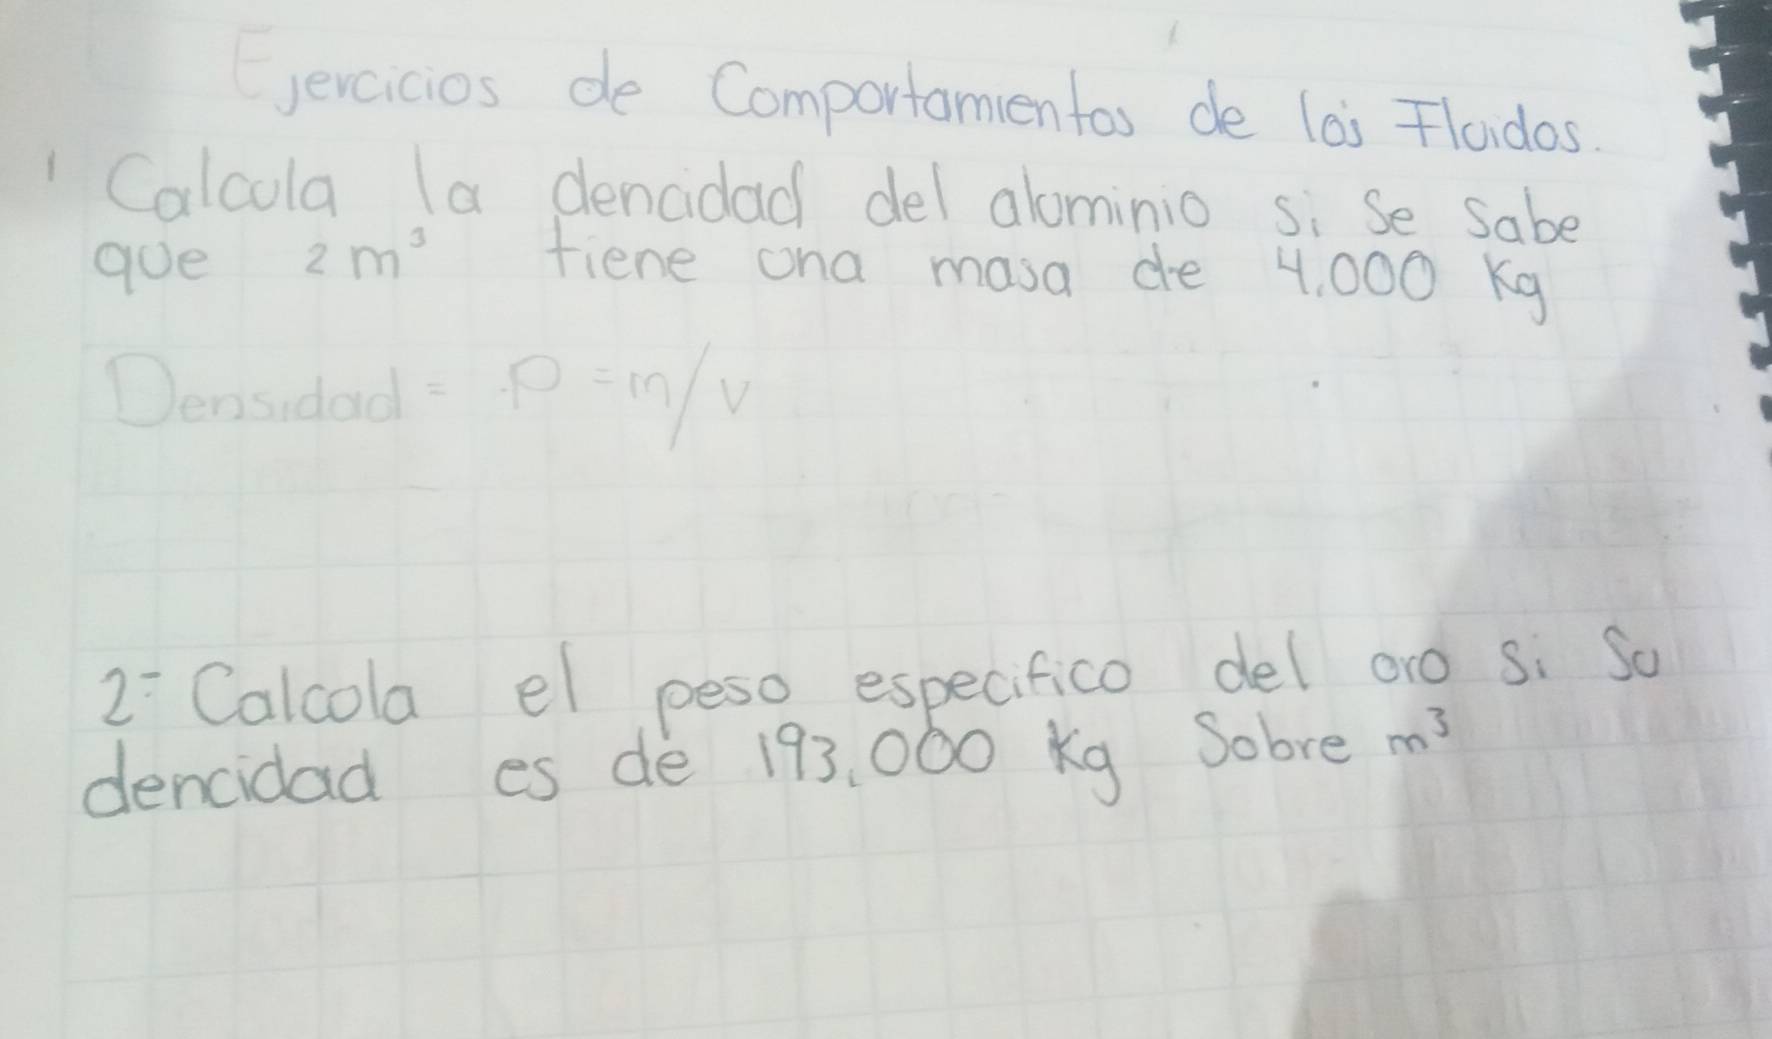 Ejercicios de Comportamientos de los Fluidos.
1 Calcula la dencidad del aluminio si se sabe
que 2 m³ tiene una masa de 4.000 Kg
Densidad = ρ = m/v
2- Calcula el peso especifico del oro si su
dencidad es de 193.000 Kg Sobre m³